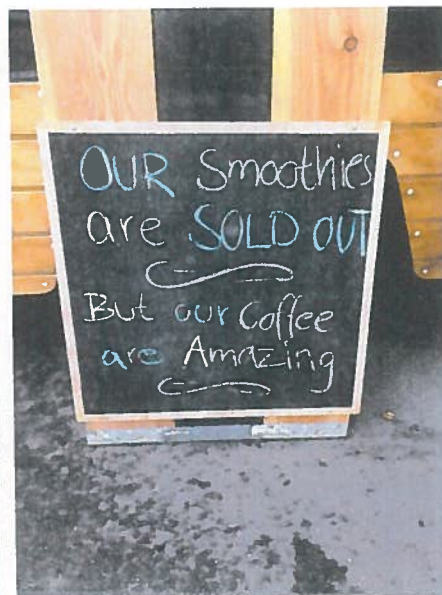 OUR Smoothies
are SOLD OUT
But our Coffee
are Amazing